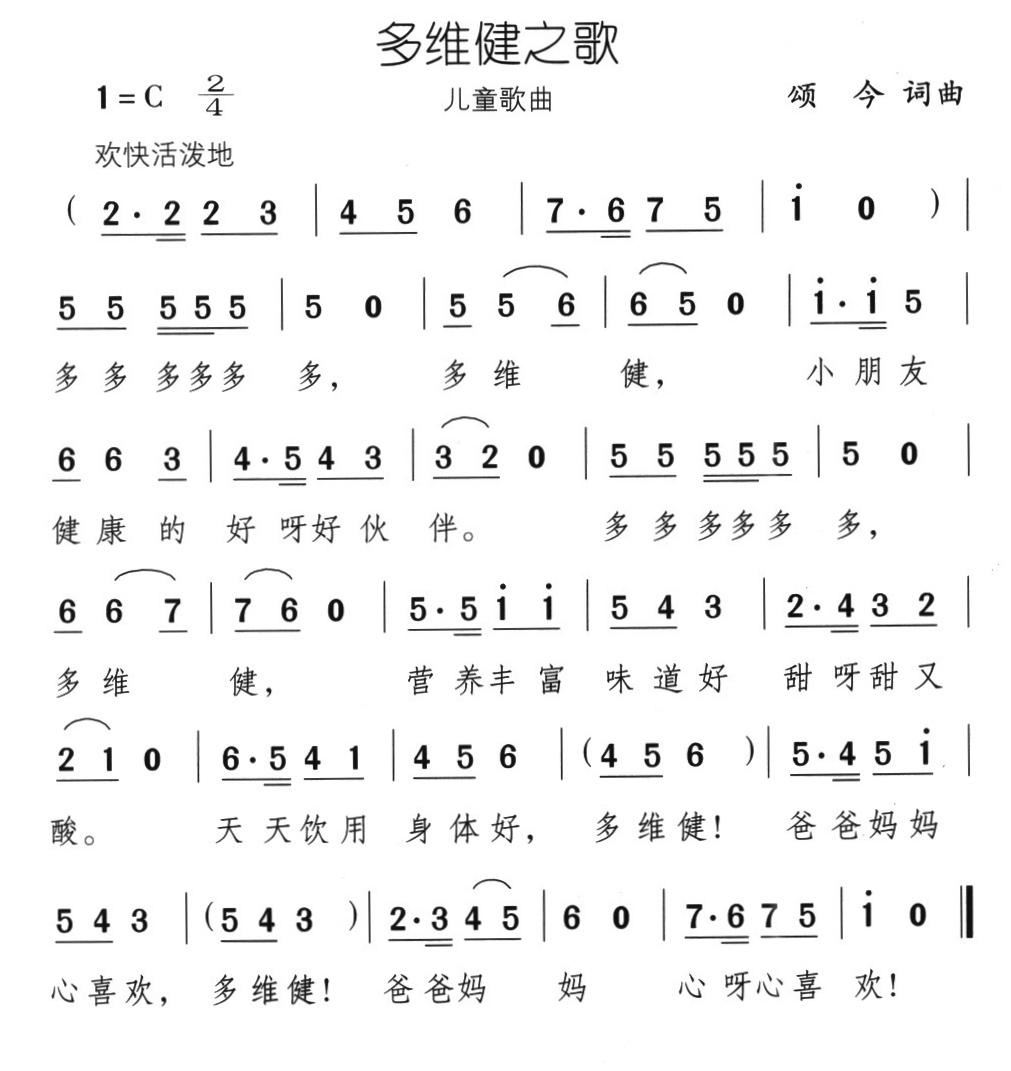 多维健之歌
1=C 2/4 儿童歌曲 颂 今 词曲
欢快活泼地
( 2· 2 2 3 | 4 5 6 | 7· 6 7 5 | i 0 ) |
5 5 5 5 5 | 5 0 | 5 5 6 | 6 5 0 | i· i 5 |
多 多 多多多 多, 多 维 健, 小 朋 友
6 6 3 | 4· 5 4 3 | 3 2 0 | 5 5 5 5 5 | 5 0 |
健 康 的 好 呀好 伙 伴。 多 多 多多多 多,
6 6 7 | 7 6 0 | 5· 5 i i | 5 4 3 | 2· 4 3 2 |
多 维 健, 营 养丰 富 味 道 好 甜 呀甜 又
2 1 0 | 6· 5 4 1 | 4 5 6 | ( 4 5 6 ) | 5· 4 5 i |
酸。 天 天饮 用 身 体 好, 多 维 健! 爸 爸妈 妈
5 4 3 | ( 5 4 3 ) | 2· 3 4 5 | 6 0 | 7· 6 7 5 | i 0 ‖
心喜欢, 多维健! 爸爸妈 妈 心 呀心喜 欢!